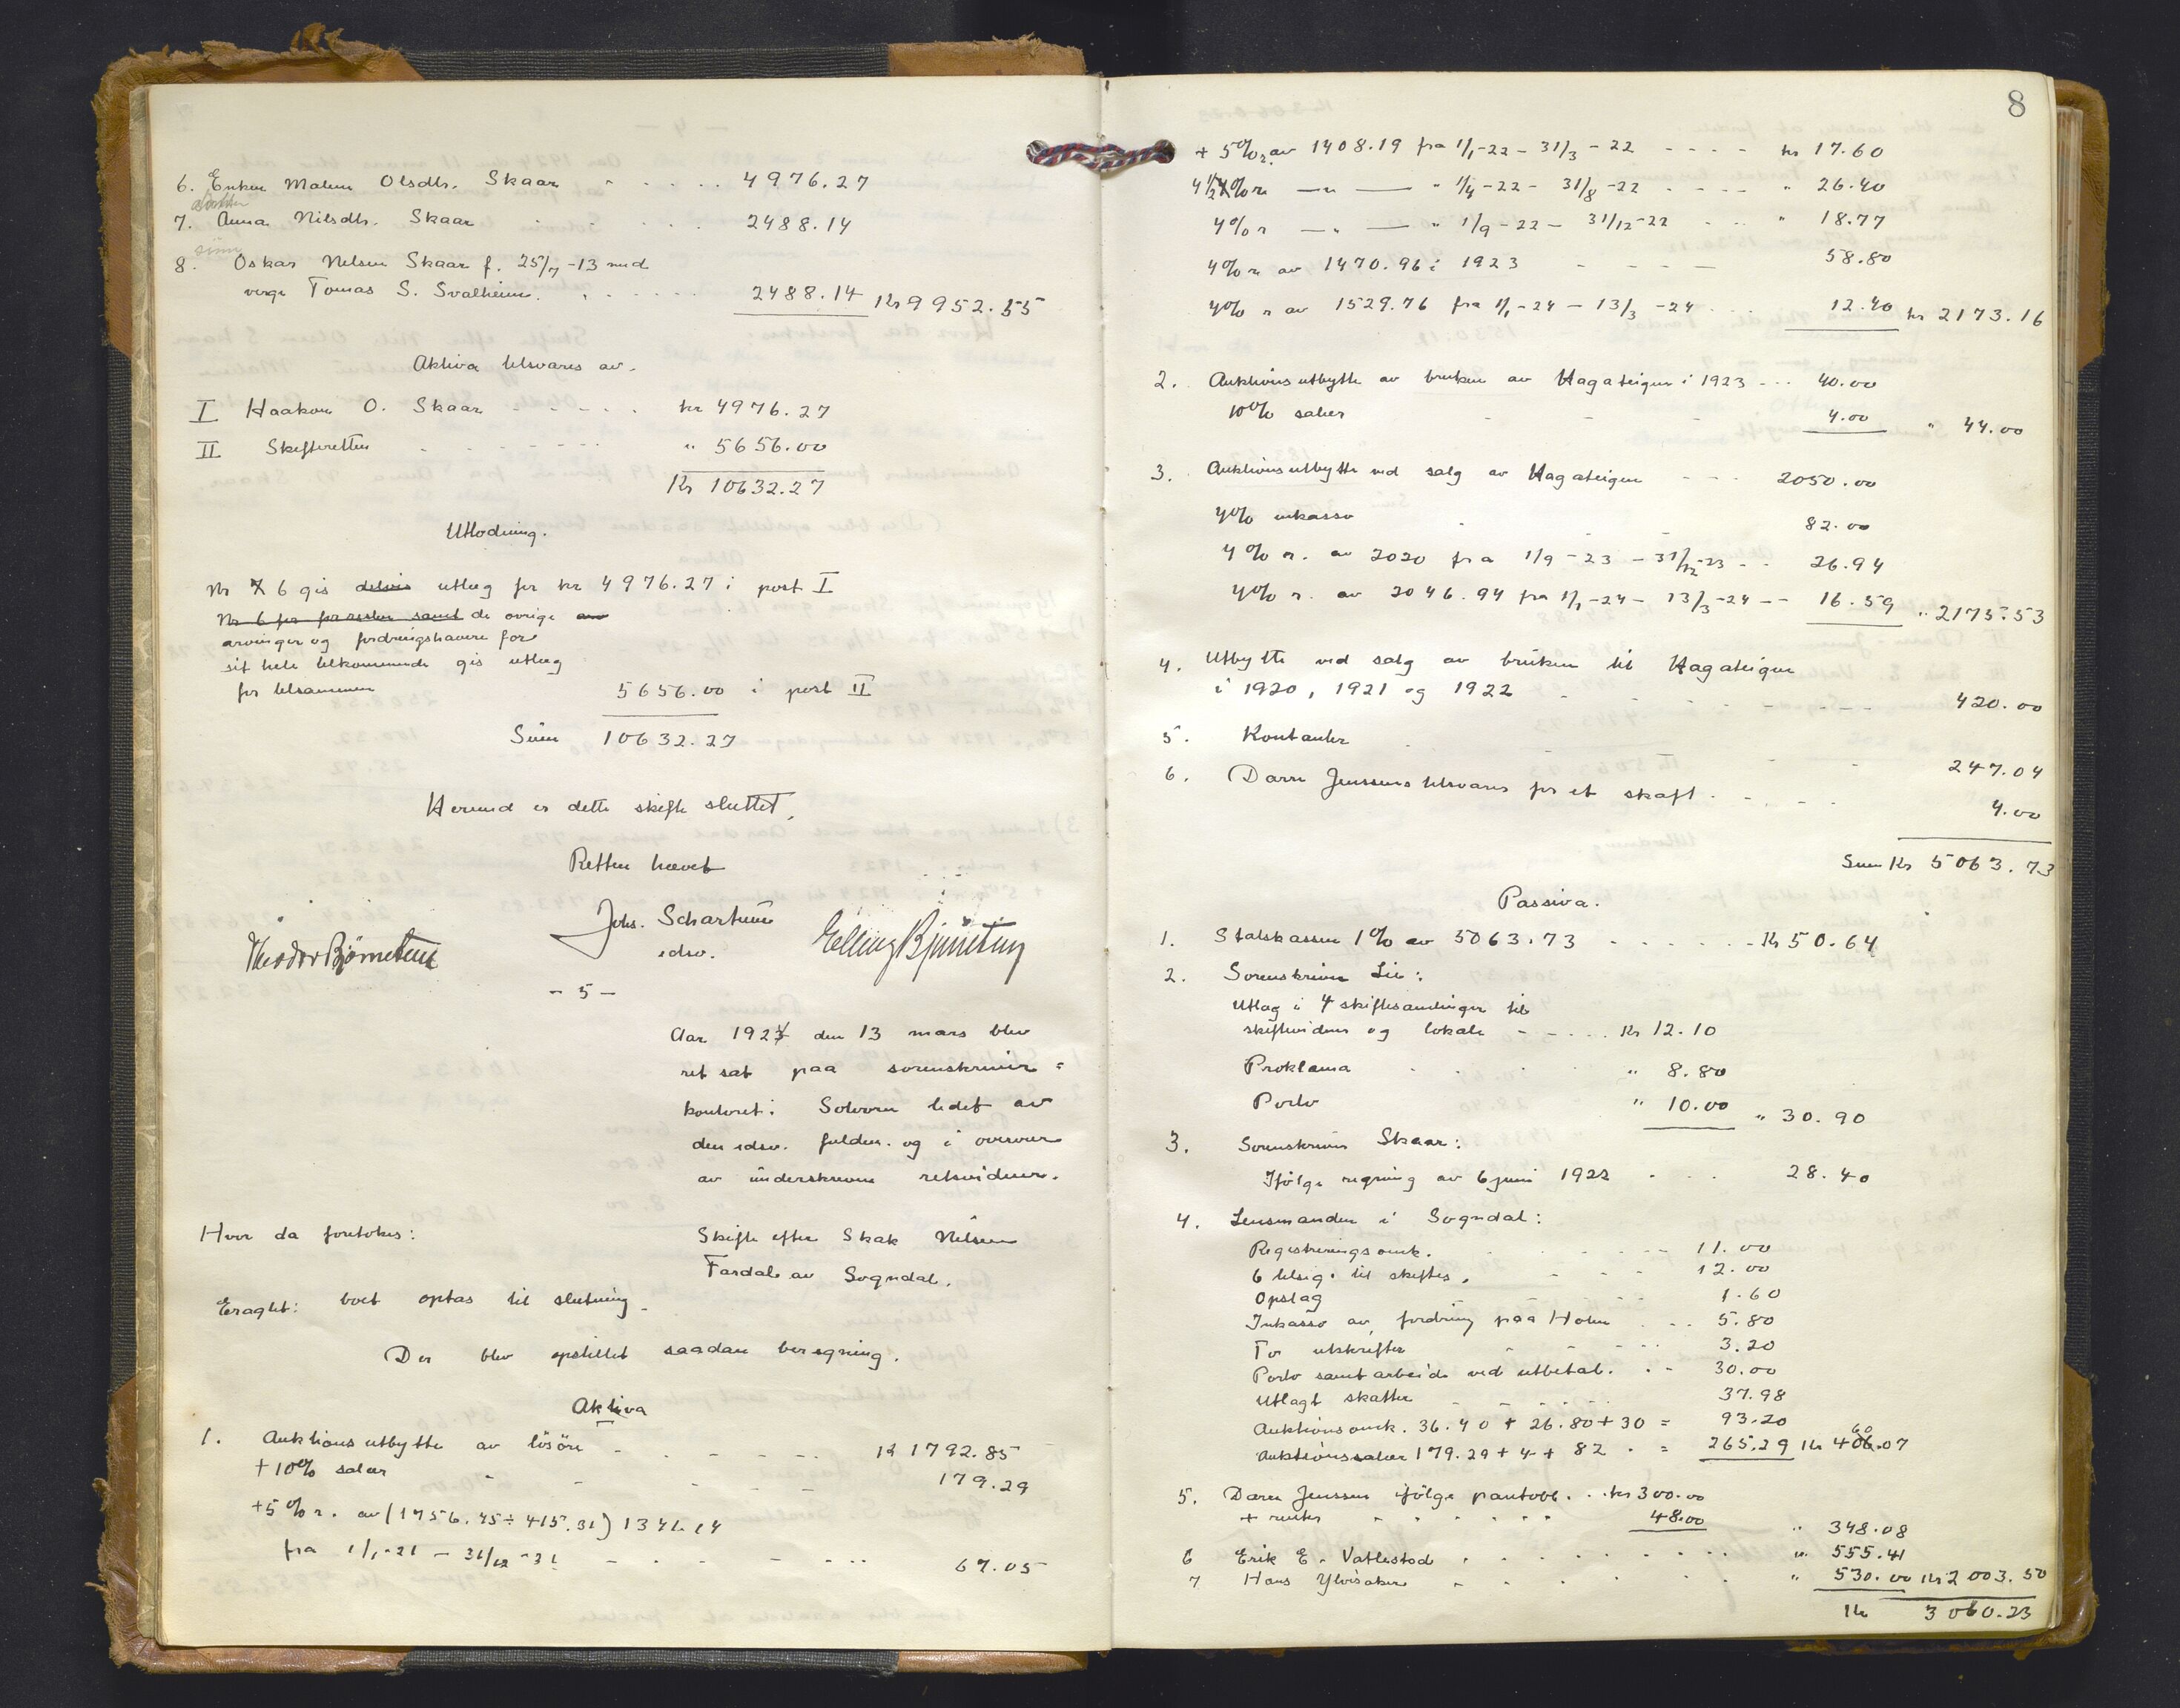 6. Enken Malene Olsdtr. Skaar - - . . . 4976.27
datter
7. Anna Nilsdtr. Skaar - - . . . 2488.14
sønn
8. Oskar Nilsen Skaar f. 25/7-13 med
verge Tomas S. Svalheim. . . - - - 2488.14 Kr 9952.55
Aktiva tilsvares av.
I Haakon O. Skaar - - - - kr 4976.27
II Skifteretten - - - - " 5656.00
Kr 10632.27
Utlodning.
Nr 6 gis delvis utlæg for kr 4976.27 i post I
Nr 6 for for resten samt de øvrige
arvinger og fordringshavere for
sit hele tilkommende gis utlæg
for tilsammen 5656.00 i post II
Sum 10632.27
Hermed er dette skifte sluttet,
Retten hævet
Johs. Schartum
edsv.
Theodor Bjørnetun
Elling Bjørnetun
- 5 -
Aar 1924 den 13 mars blev
ret sat paa sorenskriver=
kontoret i Solvorn ledet av
den edsv. fuldm. og i overvær
av underskrevne retsvidner.
Hvor da foretokes: Skifte efter Skak Nilsen
Fardal av Sogndal.
Eragtet: boet optas til slutning.
Der blev opstillet saadan beregning.
Aktiva
1. Auktionsutbytte av løsøre - - - - kr 1792.85
+ 10% salær - - - - 179.29
+ 5% r. av (1756.45 ÷ 415.31) 1341.14
fra 1/1-21 - 31/12-21 - - - - 67.05
8
+ 5% r. av 1408.19 fra 1/1-22 - 31/3-22 - - - - kr 17.60
4 1/2 % r. — " — " 1/4-22 - 31/8-22 - - - - " 26.40
4% r — " — " 1/9-22 - 31/12-22 - - - " 18.77
4% r. av 1470.96 i 1923 - - - - 58.80
4% r av 1529.76 fra 1/1-24 - 13/3-24 - - - 12.40 kr 2173.16
2. Auktionsutbytte av bruken av Hagateigen i 1923 - - - 40.00
10% salær - - - 4.00 " 44.00
3. Auktionsutbytte ved salg av Hagateigen - - - 2050.00
4% inkasso - - - 82.00
4% r. av 2020 fra 1/9-23 - 31/12-23 - - 26.94
4% r. av 2046.94 fra 1/1-24 - 13/3-24 - - 16.59 " 2175.53
4. Utbytte ved salg av bruken til Hagateigen
i 1920, 1921 og 1922 - - - - - - 420.00
5. Kontanter - - - 247.04
6. Darre Jenssens tilsvares for et skaft - - - 4.00
Sum Kr 5063.73
Passiva.
1. Statskassen 1% av 5063.73 - - - - - - Kr 50.64
2. Sorenskriver Lie:
Utlæg i 4 skiftesamlinger til
skiftevidner og lokale - - - - Kr 12.10
Proklama . . . . " 8.80
Porto " 10.00 " 30.90
3. Sorenskriver Skaar:
Ifølge regning av 6 juni 1922 - - - 28.40
4. Lensmanden i Sogndal:
Registreringsomk. - - - - 11.00
6 tilsig. til skiftes. - - - 12.00
Opslag 1.60
Inkasso av fordring paa Holm - - - 5.80
For utskrifter - - - 3.20
Porto samt arbeide ved utbetal. - - 30.00
Utlagt skatter - - - - 37.98
Auktionsomk. 36.40 + 26.80 + 30 = 93.20
Auktionssalær 179.29 + 4 + 82 . = 265.29 Kr 460.07
5. Darre Jenssen ifølge pantobl. . . kr 300.00
+ renter - - - - - 48.00 " 348.08
6 Erik E. Vatlestad - - - - - - " 555.41
7 Hans Ylvisaker - - - - - - " 530.00 Kr 2003.50
Kr 3060.23